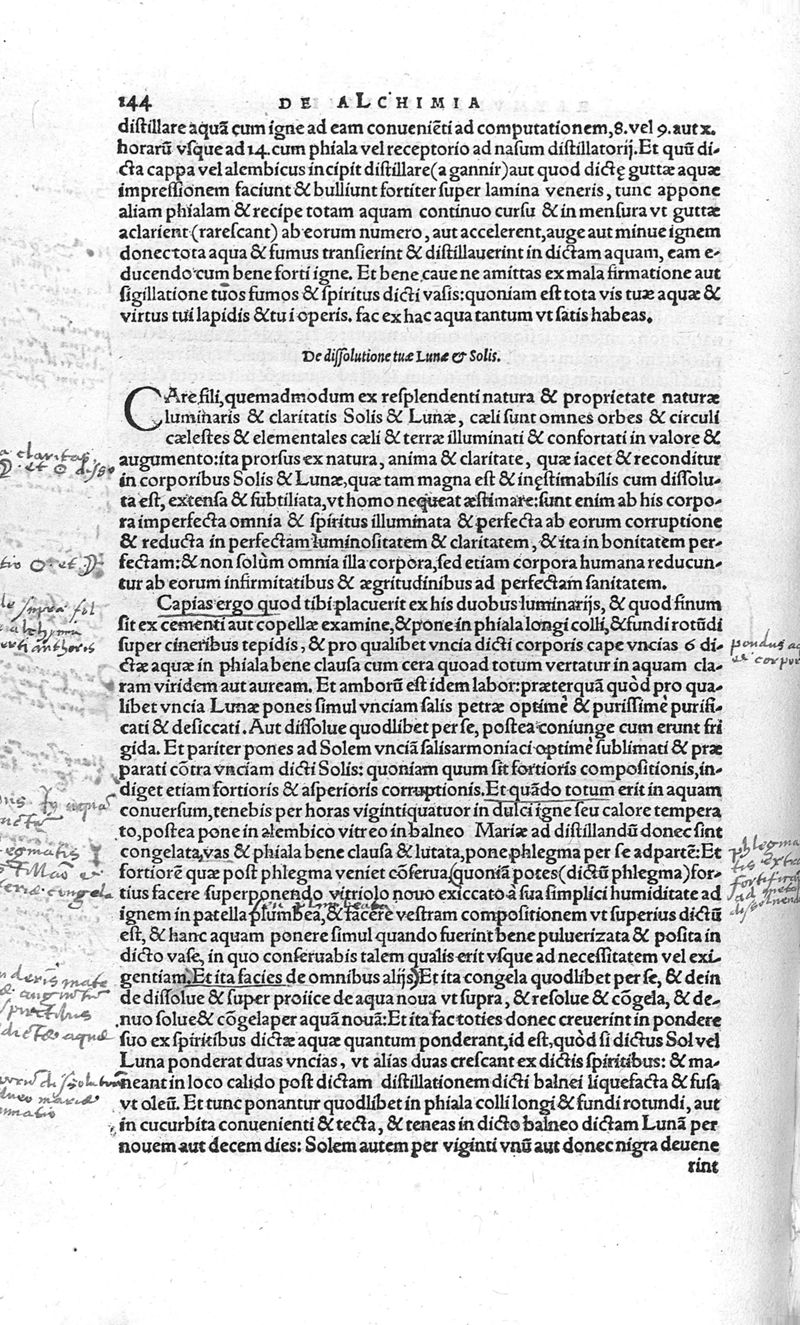 144 DE ALCHIMIA
distillare aquã cum igne ad eam conueniẽti ad computationem, 8. vel 9. aut x.
horarũ vsque ad 14. cum phiala vel receptorio ad nasum distillatorij. Et quũ di-
cta cappa vel alembicus incipit distillare (a gannir) aut quod dictę guttæ aquæ
impressionem faciunt & bulliunt fortiter super lamina veneris, tunc appone
aliam phialam & recipe totam aquam continuo cursu & in mensura vt guttæ
aclarient (rarescant) ab eorum numero, aut accelerent, auge aut minue ignem
donec tota aqua & fumus transierint & distillauerint in dictam aquam, eam e-
ducendo cum bene forti igne. Et bene caue ne amittas ex mala firmatione aut
sigillatione tuos fumos & spiritus dicti vasis: quoniam est tota vis tuæ aquæ &
virtus tui lapidis & tui operis. fac ex hac aqua tantum vt satis habeas.
De dissolutione tuæ Lunæ & Solis.
CAre fili, quemadmodum ex resplendenti natura & proprietate naturæ
luminaris & claritatis Solis & Lunæ, cæli sunt omnes orbes & circuli
cælestes & elementales cæli & terræ illuminati & confortati in valore &
augumento: ita prorsus ex natura, anima & claritate, quæ iacet & reconditur
in corporibus Solis & Lunæ, quæ tam magna est & inęstimabilis cum dissolu-
ta est, extensa & subtiliata, vt homo nequeat æstimare: sunt enim ab his corpo-
ra imperfecta omnia & spiritus illuminata & perfecta ab eorum corruptione
& reducta in perfectam luminositatem & claritatem, & ita in bonitatem per-
fectam: & non solùm omnia illa corpora, sed etiam corpora humana reducun-
tur ab eorum infirmitatibus & ægritudinibus ad perfectam sanitatem.
Capias ergo quod tibi placuerit ex his duobus luminarijs, & quod finum
sit ex cementi aut copellæ examine, & pone in phiala longi colli, & fundi rotũdi
super cineribus tepidis, & pro qualibet vncia dicti corporis cape vncias 6 di-
ctæ aquæ in phiala bene clausa cum cera quoad totum vertatur in aquam cla-
ram viridem aut auream. Et amborũ est idem labor: præterquã quòd pro qua-
libet vncia Lunæ pones simul vnciam salis petræ optimè & purissimè purifi-
cati & desiccati. Aut dissolue quodlibet per se, postea coniunge cum erunt fri
gida. Et pariter pones ad Solem vnciã salisarmoniaci optimè sublimati & præ
parati cõtra vnciam dicti Solis: quoniam quum sit fortioris compositionis, in-
diget etiam fortioris & asperioris corruptionis. Et quãdo totum erit in aquam
conuersum, tenebis per horas vigintiquatuor in dulci igne seu calore tempera
to, postea pone in alembico vitreo in balneo Mariæ ad distillandũ donec sint
congelata, vas & phiala bene clausa & lutata, pone phlegma per se ad partẽ: Et
fortiorẽ quæ post phlegma veniet cõserua, (quoniã potes (dictũ phlegma) for-
tius facere superponendo vitriolo nouo exiccato à sua simplici humiditate ad
ignem in patella plumbea, & facere vestram compositionem vt superius dictũ
est, & hanc aquam ponere simul quando fuerint bene puluerizata & posita in
dicto vase, in quo conseruabis talem qualis erit vsque ad necessitatem vel exi-
gentiam. Et ita facies de omnibus alijs) Et ita congela quodlibet per se, & dein
de dissolue & super proiice de aqua noua vt supra, & resolue & cõgela, & de-
nuo solue & cõgela per aquã nouã: Et ita fac toties donec creuerint in pondere
suo ex spiritibus dictæ aquæ quantum ponderant, id est, quòd si dictus Sol vel
Luna ponderat duas vncias, vt alias duas crescant ex dictis spiritibus: & ma-
neant in loco calido post dictam distillationem dicti balnei liquefacta & fusa
vt oleũ. Et tunc ponantur quodlibet in phiala colli longi & fundi rotundi, aut
in cucurbita conuenienti & tecta, & teneas in dicto balneo dictam Lunã per
nouem aut decem dies: Solem autem per viginti vnũ aut donec nigra deuene
rint